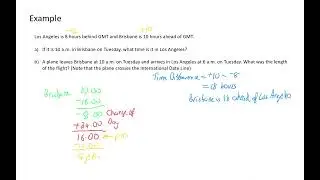 Example
-8
+10
Los Angeles is 8 hours behind GMT and Brisbane is 10 hours ahead of GMT.
a) If it is 10 a.m. in Brisbane on Tuesday, what time is it in Los Angeles?
b) A plane leaves Brisbane at 10 a.m. on Tuesday and arrives in Los Angeles at 6 a.m. on Tuesday. What was the
length of the flight? (Note that the plane crosses the International Date Line)
Time Difference = +10 - -8
= 18 hours
Brisbane is 18 ahead of Los Angeles
Brisbane 10.00
-18.00
-8.00 Change of
+24.00 Day
16.00